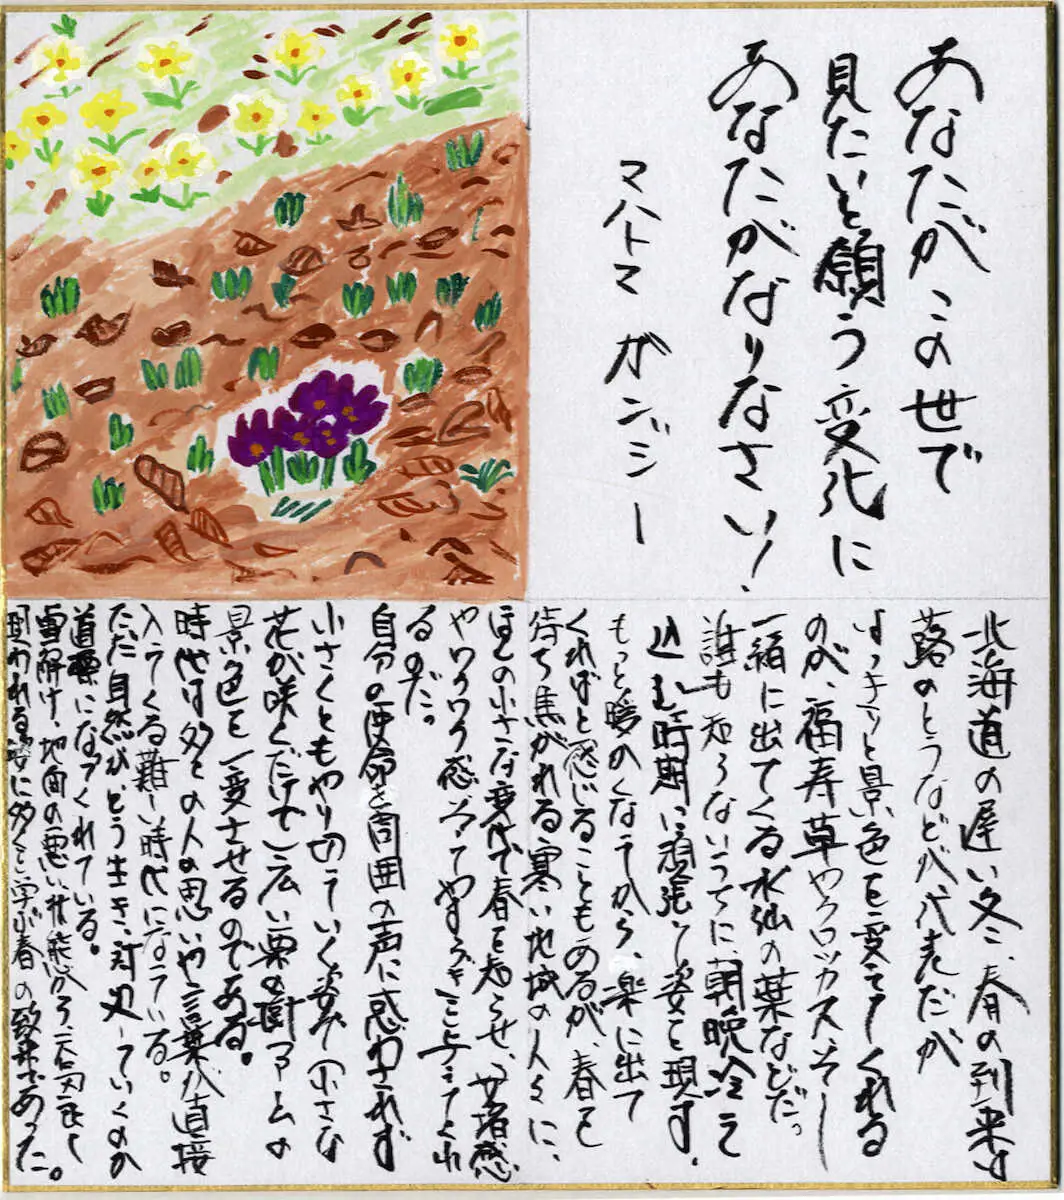 あなたがこの世で
見たいと願う変化に
あなたがなりなさい!
マハトマ ガンジー
北海道の遅い冬、春の到来は
蕗のとうなどが代表だが
はっきりと景色を変えてくれる
のが、福寿草やクロッカスそし
一緒に出てくる水仙の葉などだ。
誰も知らないうちに朝晩冷え
込む時期に頑張って姿を現す。
もっと暖かくなってから、楽に出て
くればと感じることもあるが、春を
待ち焦がれる寒い地域の人々に、
ほんの小さな変化で春を知らせ、安堵感
やワクワク感そしてやすらぎを与えてくれ
るのだ。
自分の使命を周囲の声に惑わされず
小さくともやり切っていく姿 小さな
花が咲くだけで広い栗の樹ファームの
景色を一変させるのである。
時代は多くの人の思いや言葉が直接
入ってくる難しい時代になっている。
ただ自然がどう生き、対処していくのか
道標になってくれている。
雪解け、地面の悪い状態から
現われる姿に多くを学ぶ春の散歩であった。